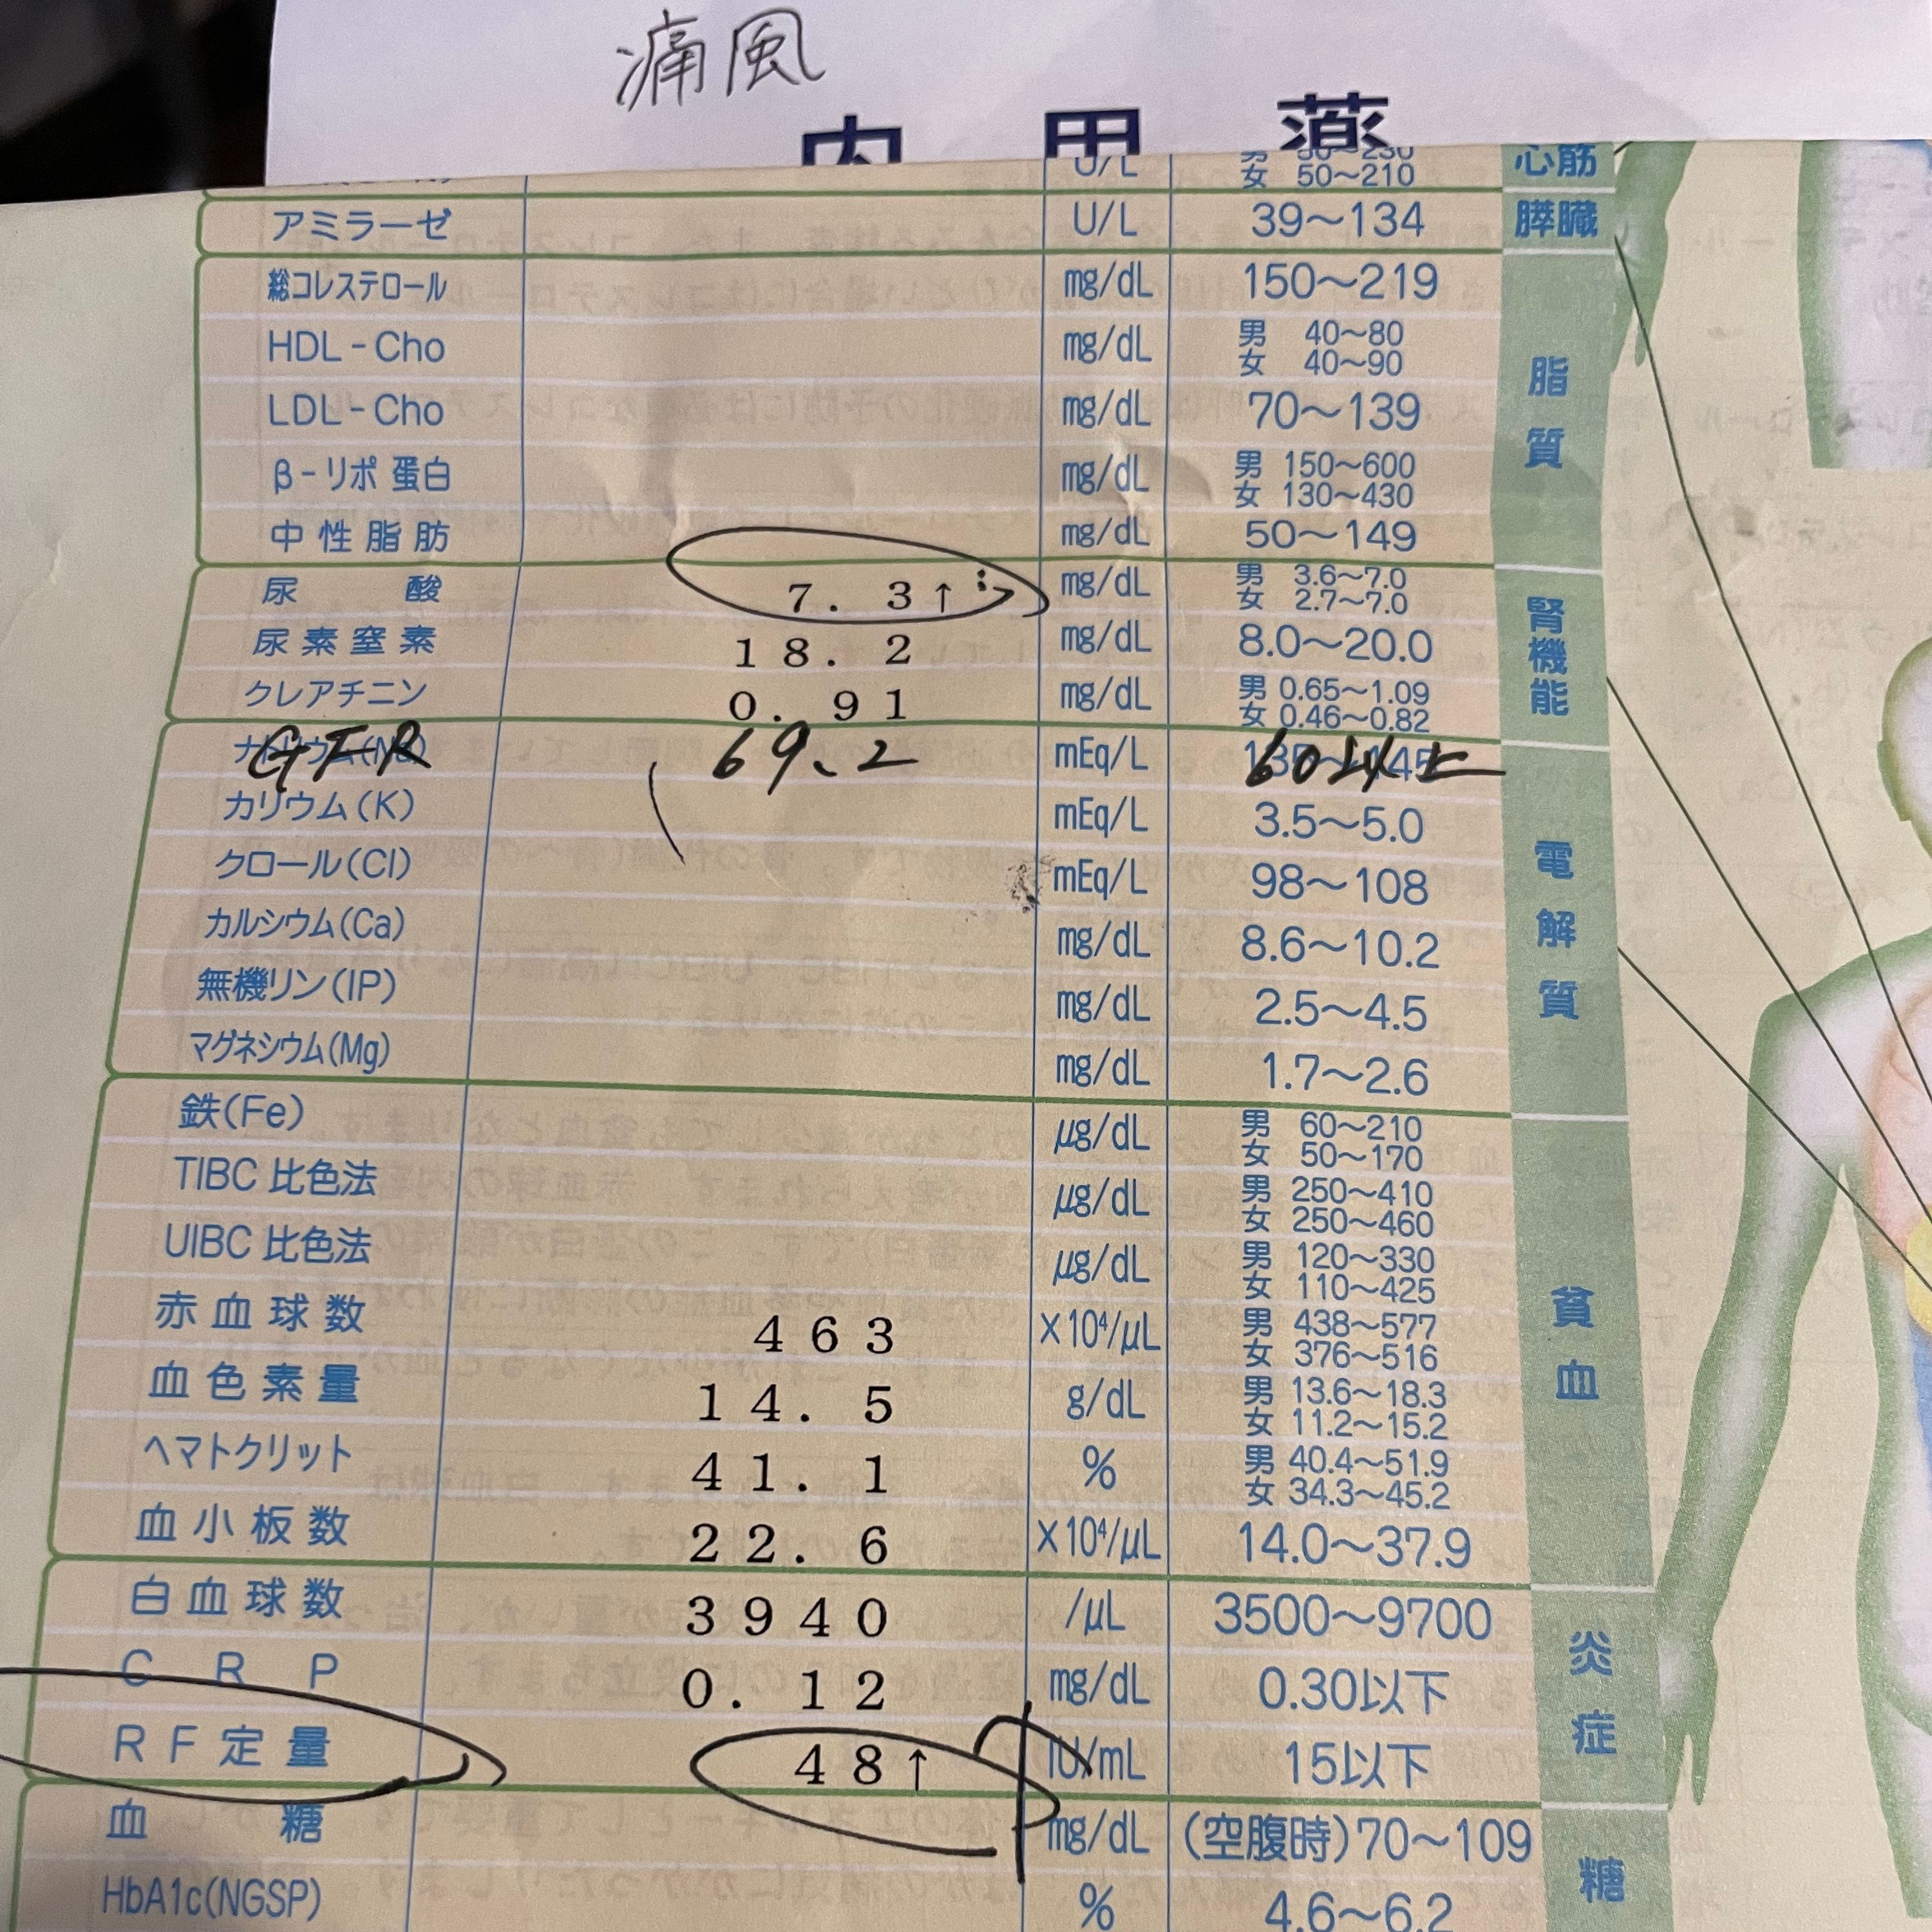 痛風
内用薬
U/L 女 50〜210 心筋
アミラーゼ U/L 39〜134 膵臓
総コレステロール mg/dL 150〜219
HDL-Cho mg/dL 男 40〜80 女 40〜90
LDL-Cho mg/dL 70〜139
β-リポ蛋白 mg/dL 男 150〜600 女 130〜430
中性脂肪 mg/dL 50〜149
脂質
尿酸 7.3↑ mg/dL 男 3.6〜7.0 女 2.7〜7.0
尿素窒素 18.2 mg/dL 8.0〜20.0
クレアチニン 0.91 mg/dL 男 0.65〜1.09 女 0.46〜0.82
腎機能
ナトリウム(Na) mEq/L
GFR 69.2 60以上
カリウム(K) mEq/L 3.5〜5.0
クロール(Cl) mEq/L 98〜108
カルシウム(Ca) mg/dL 8.6〜10.2
無機リン(IP) mg/dL 2.5〜4.5
マグネシウム(Mg) mg/dL 1.7〜2.6
電解質
鉄(Fe) μg/dL 男 60〜210 女 50〜170
TIBC 比色法 μg/dL 男 250〜410 女 250〜460
UIBC 比色法 μg/dL 男 120〜330 女 110〜425
赤血球数 463 ×10⁴/μL 男 438〜577 女 376〜516
血色素量 14.5 g/dL 男 13.6〜18.3 女 11.2〜15.2
ヘマトクリット 41.1 % 男 40.4〜51.9 女 34.3〜45.2
血小板数 22.6 ×10⁴/μL 14.0〜37.9
貧血
白血球数 3940 /μL 3500〜9700
CRP 0.12 mg/dL 0.30以下
RF定量 48↑ IU/mL 15以下
炎症
血糖 mg/dL (空腹時)70〜109
HbA1c(NGSP) % 4.6〜6.2
糖